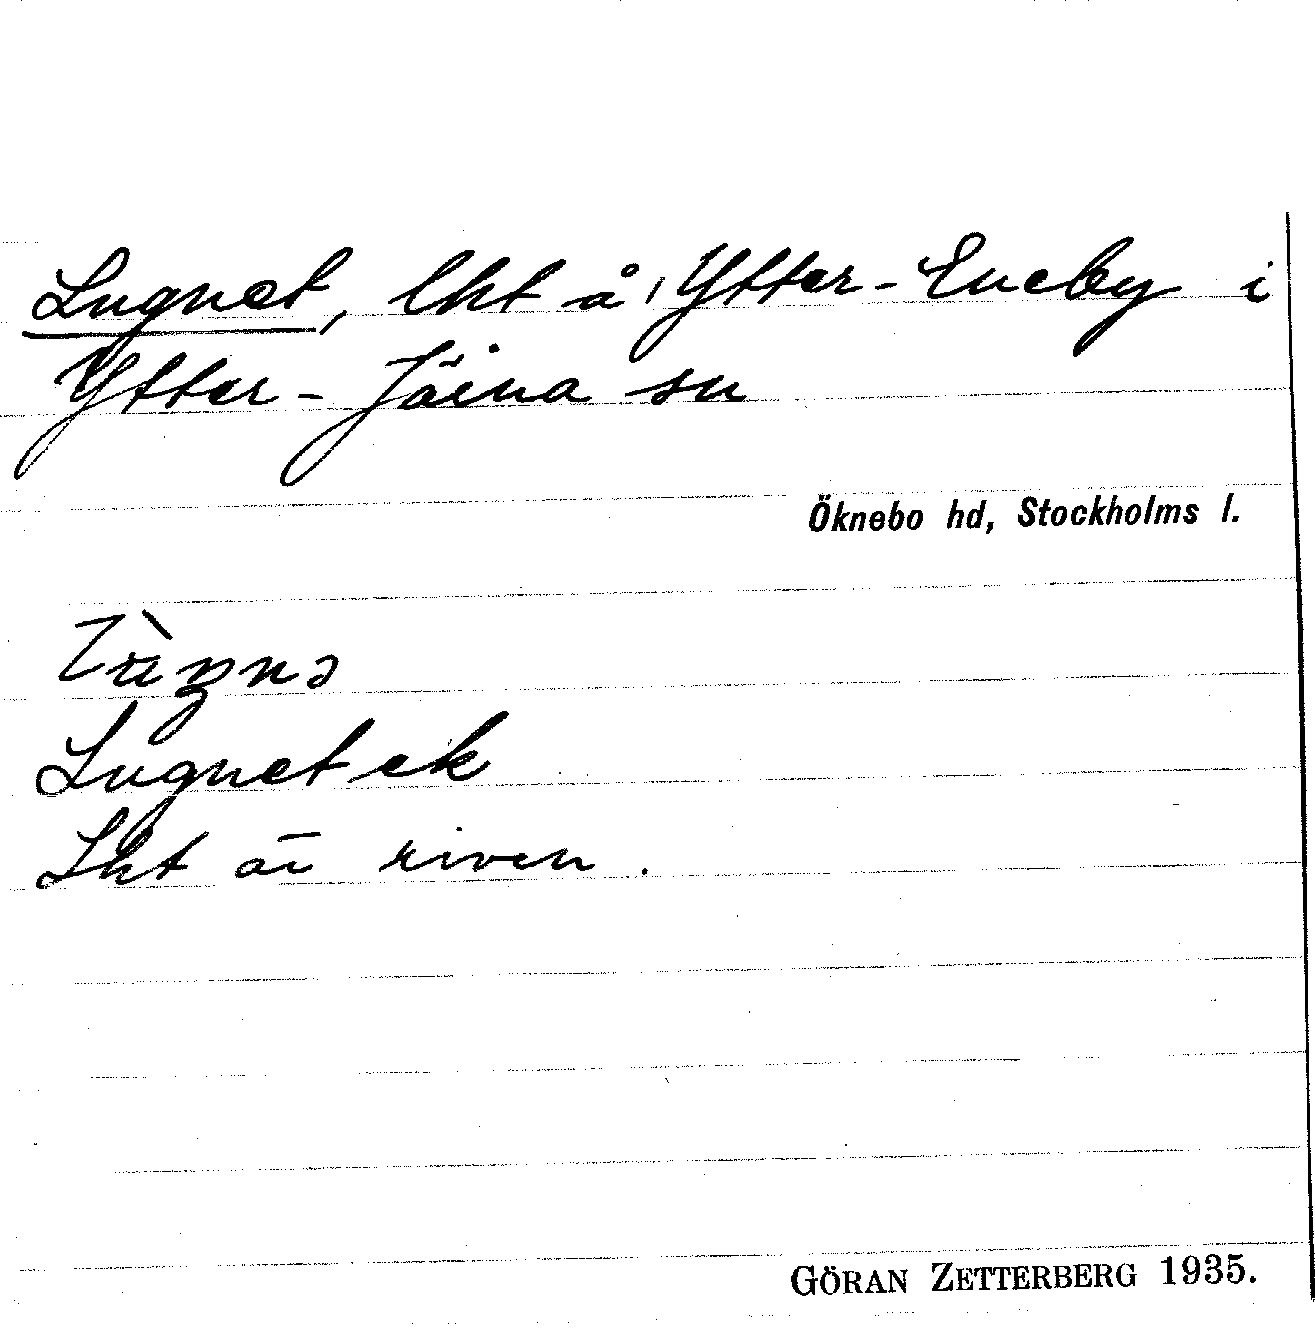 Lugnet, lht å Ytter-Eneby i
Ytter-Järna sn
Öknebo hd, Stockholms l.
Lugnet ek
Lht är riven.
GÖRAN ZETTERBERG 1935.